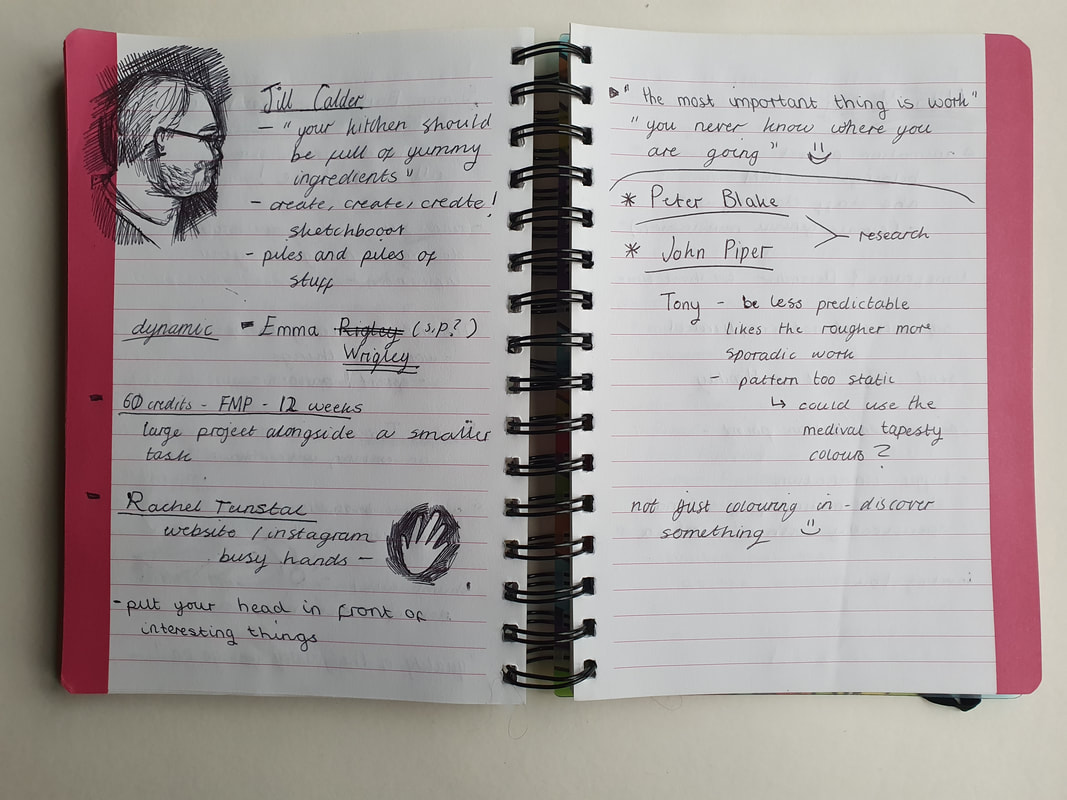 Jill Calder
- "your kitchen should
be full of yummy
ingredients"
- create, create, create!
sketchbooot
- piles and piles of
stuff
dynamic - Emma Rigley (s.p?)
Wrigley
60 credits - FMP - 12 weeks
large project alongside a smaller
task
Rachel Tunstal
website / instagram
busy hands -
- put your head in front of
interesting things
"the most important thing is work"
"you never know where you
are going"
* Peter Blake
research
* John Piper
Tony - be less predictable
likes the rougher more
sporadic work
- pattern too static
↳ could use the
medival tapesty
colours?
not just colouring in - discover
something